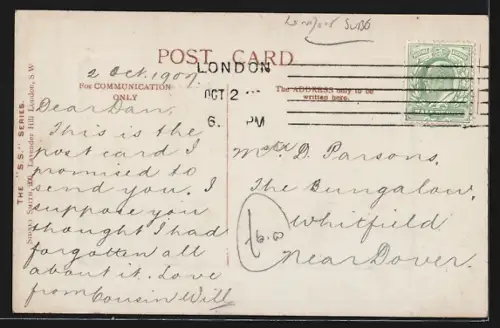 London Subs
POST CARD
2 Oct. 1907.
LONDON
OCT 2
6. PM
For COMMUNICATION
ONLY
The ADDRESS only to be
written here.
THE "S.S." SERIES.
Lavender Hill London, S.W.
Dear Dan,
This is the
post card I
promised to
send you. I
suppose you
thought I had
forgotten all
about it. Love
from Cousin Will
D. Parsons.
The Bungalow,
Whitfield
Near Dover.